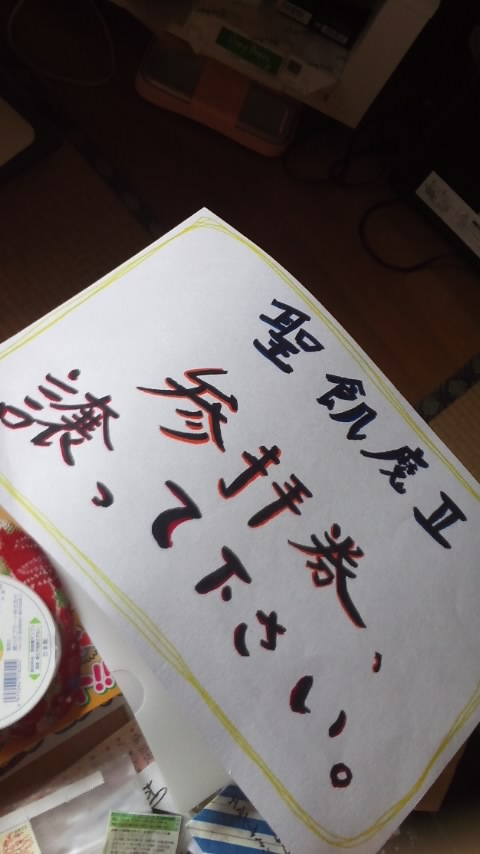 聖飢魔Ⅱ
参拝券、
譲って下さい。